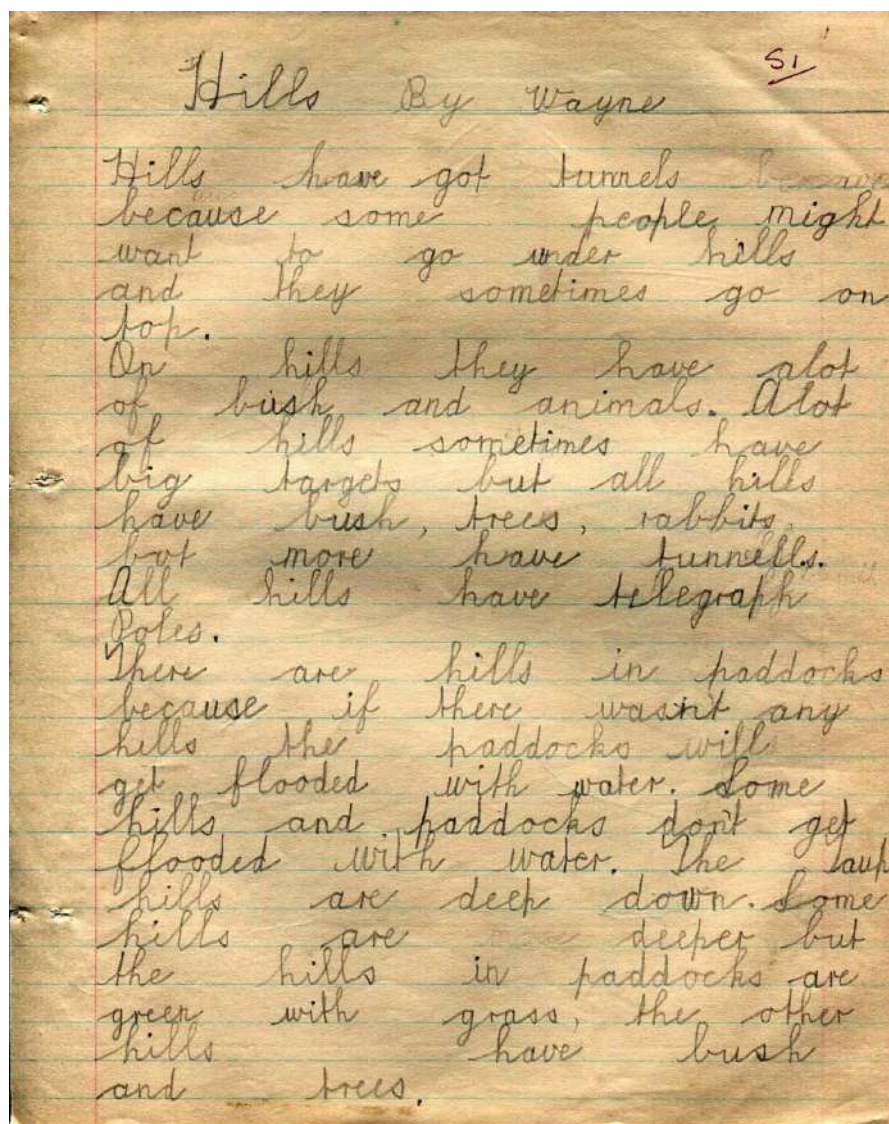 S1
Hills By Wayne
Hills have got tunnels
because some people might
want to go under hills
and they sometimes go on
top.
On hills they have alot
of bush and animals. Alot
of hills sometimes have
big targets but all hills
have bush, trees, rabbits,
but more have tunnells.
All hills have telegraph
Poles.
There are hills in paddocks
because if there wasn't any
hills the paddocks will
get flooded with water. Some
hills and paddocks don't get
flooded with water. The
hills are deep down. Some
hills are deeper but
the hills in paddocks are
green with grass, the other
hills have bush
and trees.